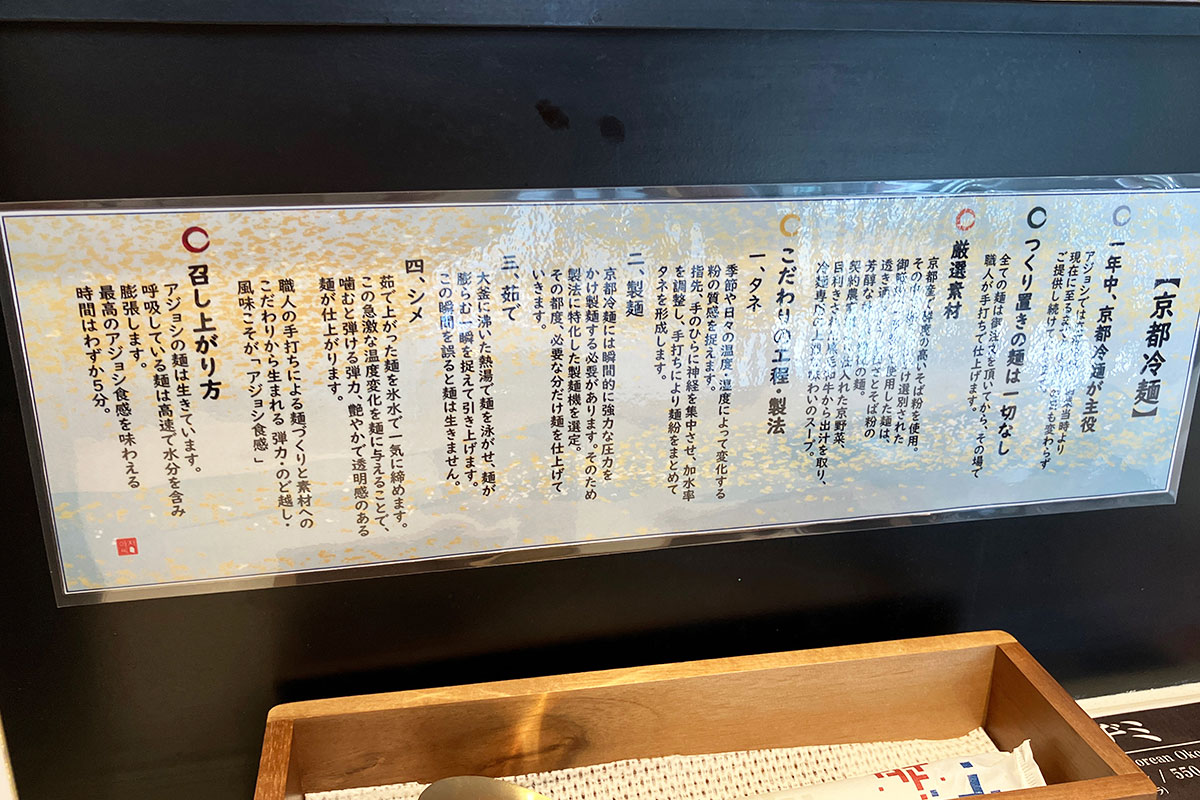 【京都冷麺】
一年中、京都冷麺が主役
アジョシでは
現在に至るまで
ご提供し続けて
も変わらず
つくり置きの麺は一切なし
全ての麺は御注文を頂いてから、その場で
職人が手打ちで仕上げます。
厳選素材
京都産
の高いそば粉を使用。
その中
け選別された
使用した麺は、
さとそば粉の
芳醇な
の麺。
契約農
入れた京野菜、
目利きさ
牛から出汁を取り、
冷麺専
味わいのスープ。
こだわりの工程・製法
一、タネ
季節や日々の温度・湿度によって変化する
粉の質感を捉えます。
指先、手のひらに神経を集中させ、加水率
を調整し、手打ちにより麺粉をまとめて
タネを形成します。
二、製麺
京都冷麺には瞬間的に強力な圧力を
かけ製麺する必要があります。そのため
製法に特化した製麺機を選定。
その都度、必要な分だけ麺を仕上げて
いきます。
三、茹で
大釜に沸いた熱湯で麺を泳がせ、麺が
膨らむ一瞬を捉えて引き上げます。
この瞬間を誤ると麺は生きません。
四、シメ
茹で上がった麺を氷水で一気に締めます。
この急激な温度変化を麺に与えることで、
噛むと弾ける弾力、艶やかで透明感のある
麺が仕上がります。
職人の手打ちによる麺づくりと素材への
こだわりから生まれる 弾力・のど越し・
風味こそが「アジョシ食感」
召し上がり方
アジョシの麺は生きています。
呼吸している麺は高速で水分を含み
膨張します。
最高のアジョシ食感を味わえる
時間はわずか5分。
ヂミ
orean Oko
/ 550